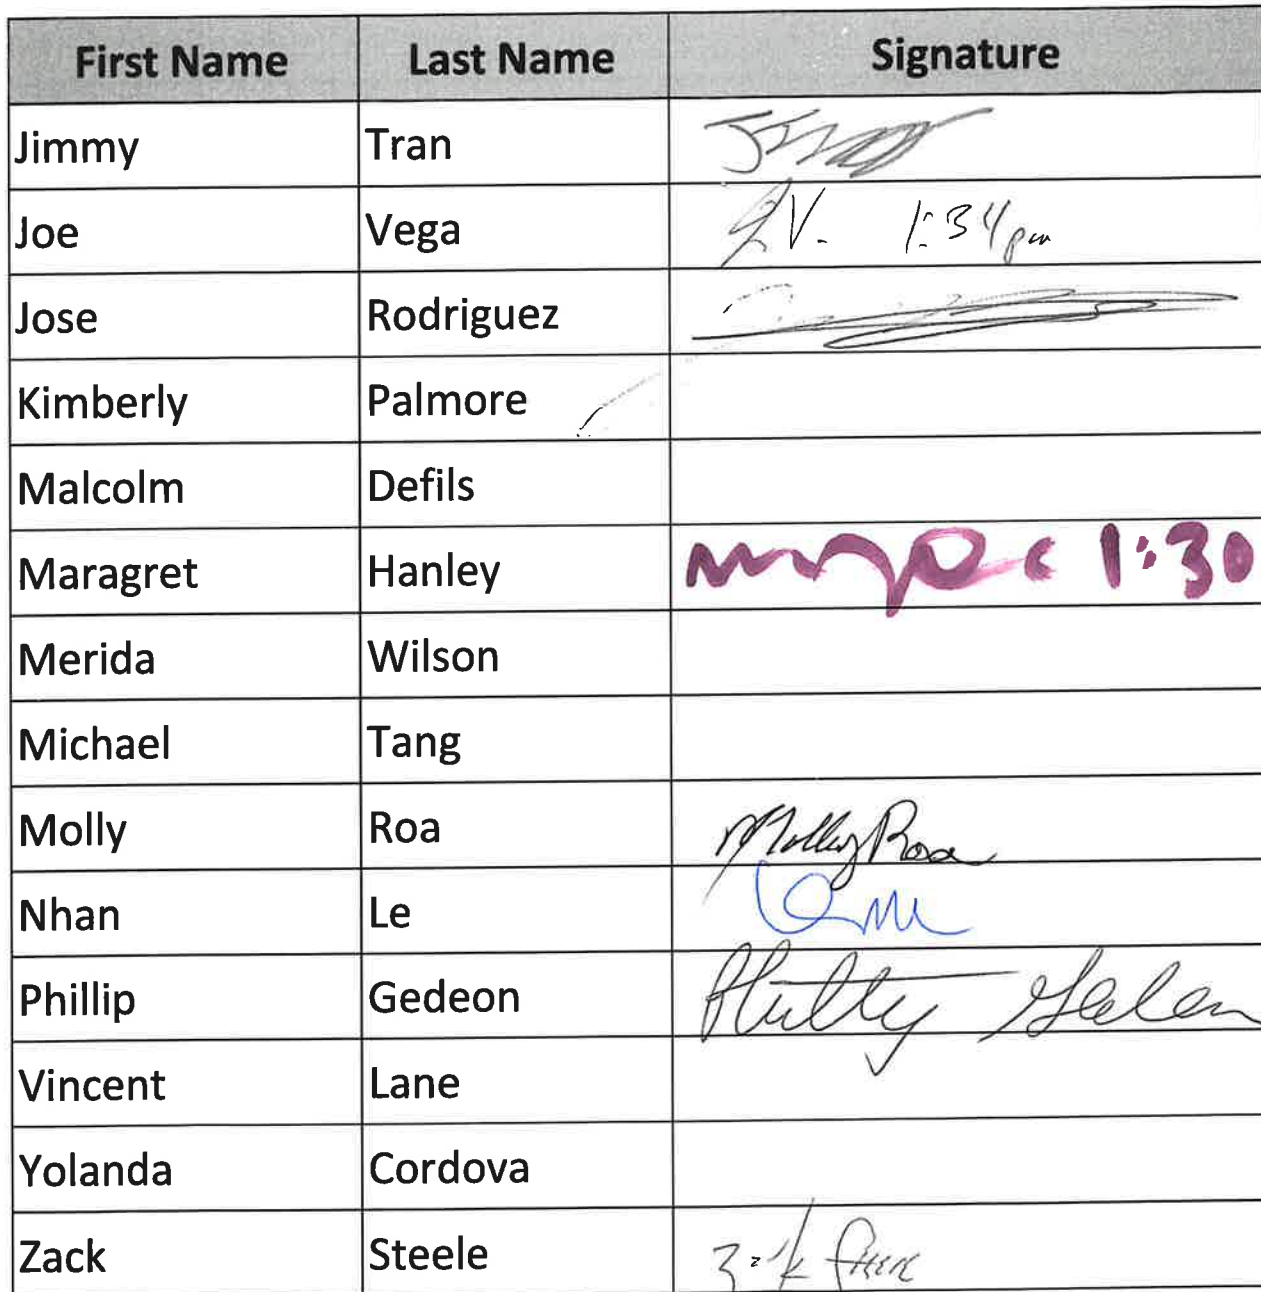 First Name Last Name Signature
Jimmy Tran
Joe Vega J.V. 1:34pm
Jose Rodriguez
Kimberly Palmore
Malcolm Defils
Maragret Hanley 1:30
Merida Wilson
Michael Tang
Molly Roa Molly Roa
Nhan Le
Phillip Gedeon
Vincent Lane
Yolanda Cordova
Zack Steele Zack Steele